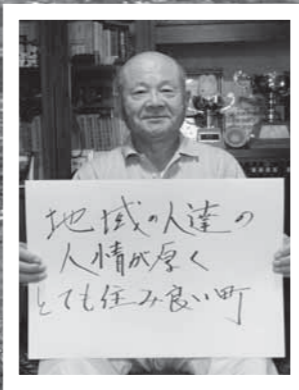 地域の人達の
人情が厚く
とても住み良い町